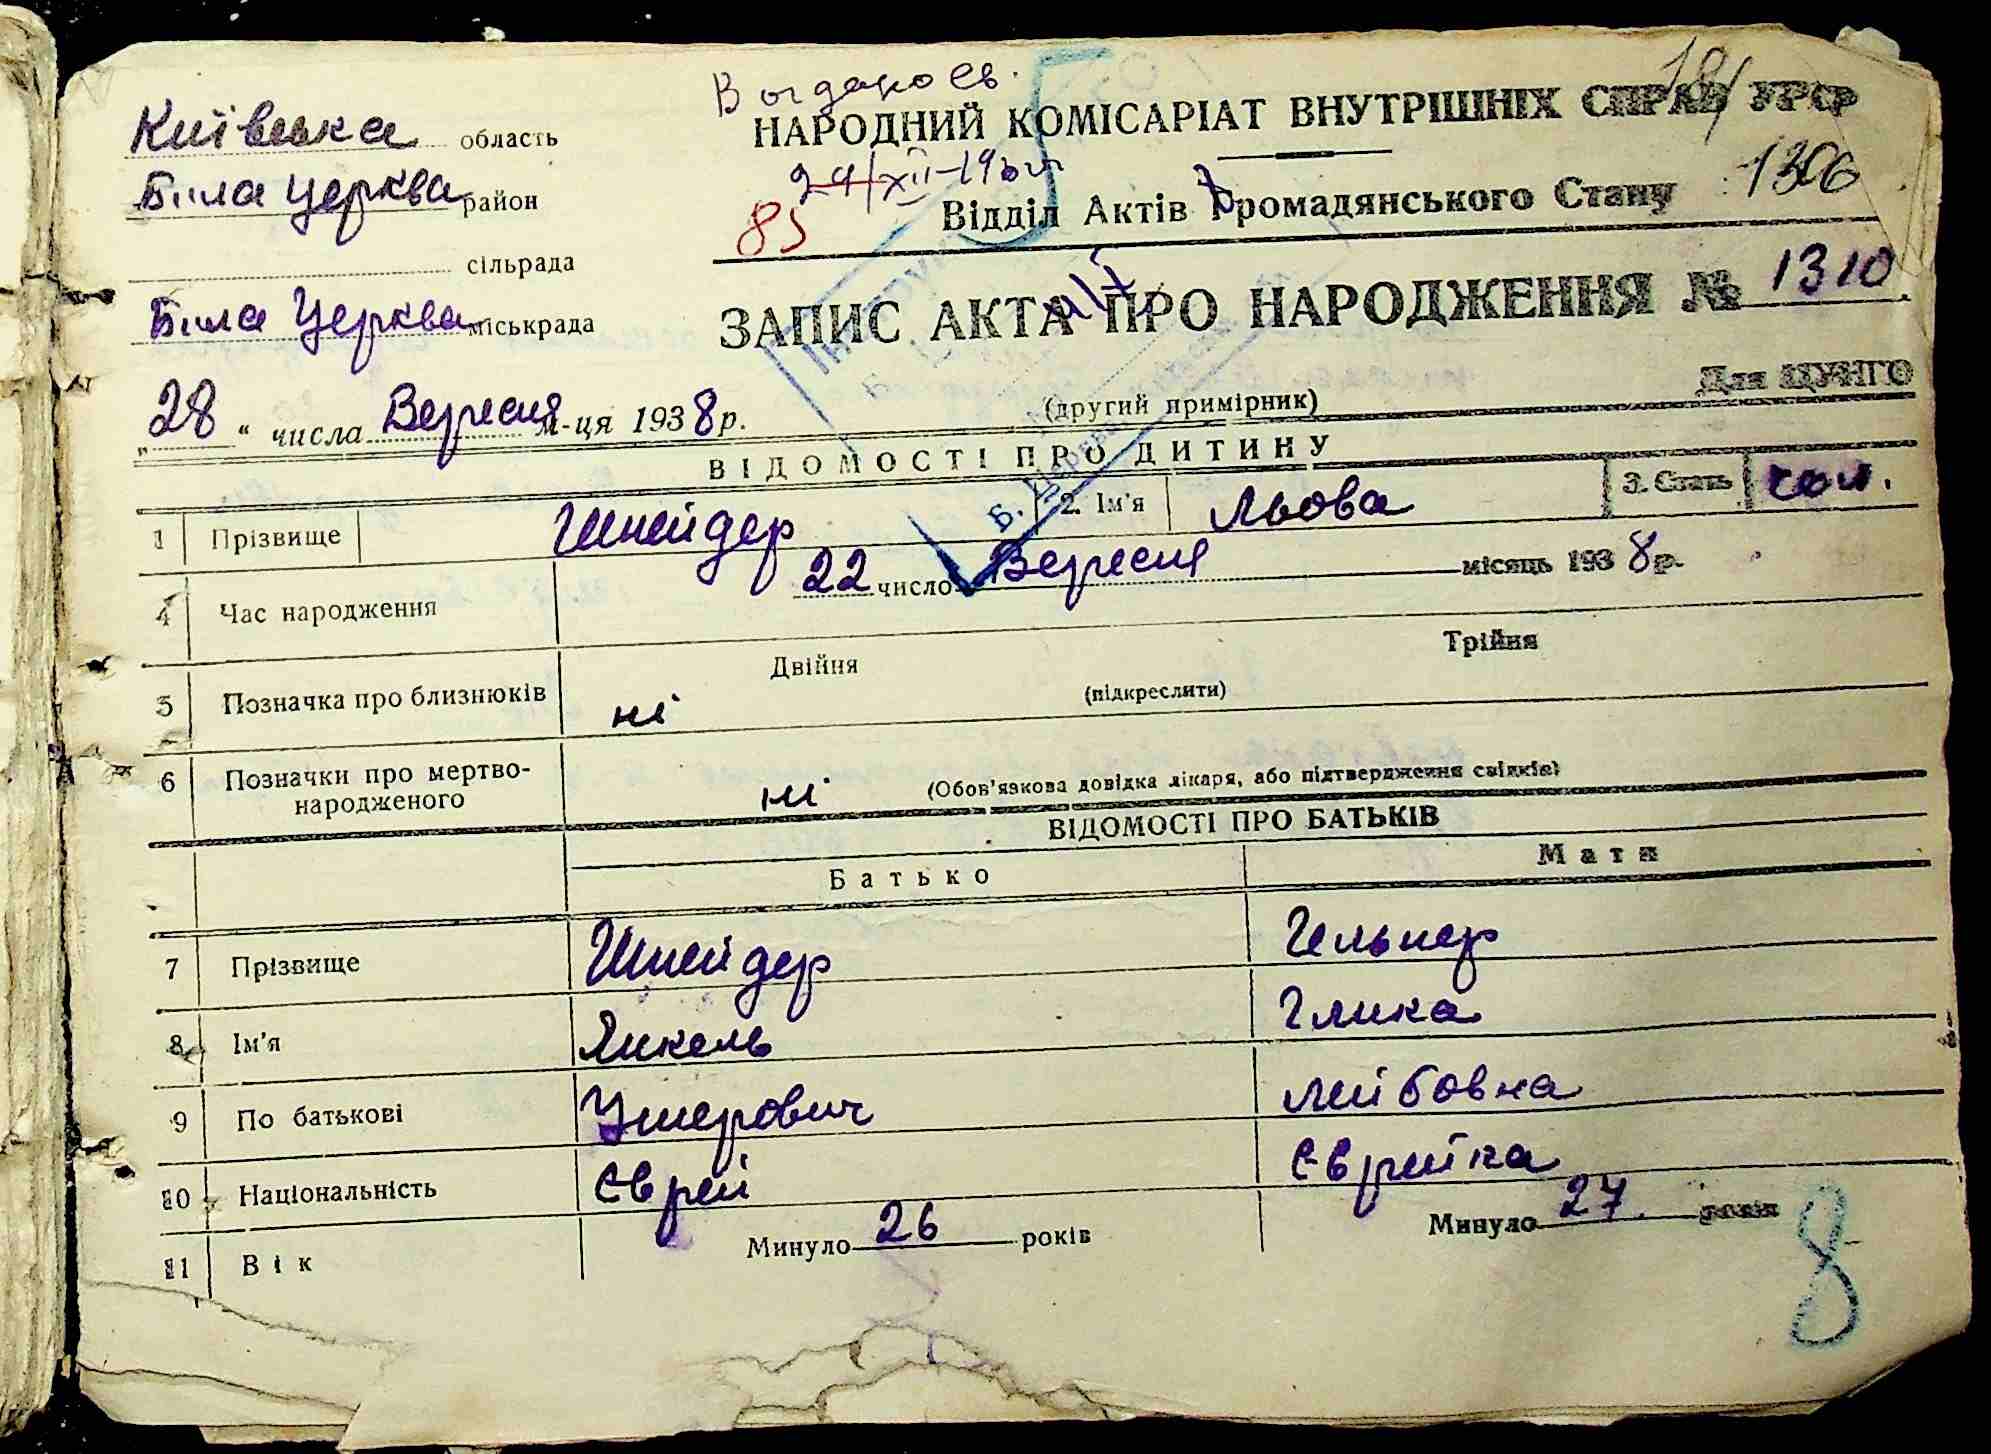 Київська область
Біла Церква район
сільрада
Біла Церква міськрада
„28“ числа Вересня м-ця 1938 р.
НАРОДНИЙ КОМІСАРІАТ ВНУТРІШНІХ СПРАВ УРСР
1306
85
Відділ Актів Громадянського Стану
ЗАПИС АКТА ПРО НАРОДЖЕННЯ № 1310
Для ЦУНГО
(другий примірник)
ВІДОМОСТІ ПРО ДИТИНУ
1 Прізвище Шнейдер 2. Ім'я Льова 3. Стать чол.
4 Час народження 22 число Вересня місяць 1938 р.
5 Позначка про близнюків ні Двійня Трійня
(підкреслити)
6 Позначки про мертво-
народженого ні (Обов'язкова довідка лікаря, або підтвердження свідків)
ВІДОМОСТІ ПРО БАТЬКІВ
Батько Мати
7 Прізвище Шнейдер Гельнер
8 Ім'я Янкель Глика
9 По батькові Ушерович Лейбовна
10 Національність Єврей Єврейка
11 Вік Минуло 26 років Минуло 27 років
8